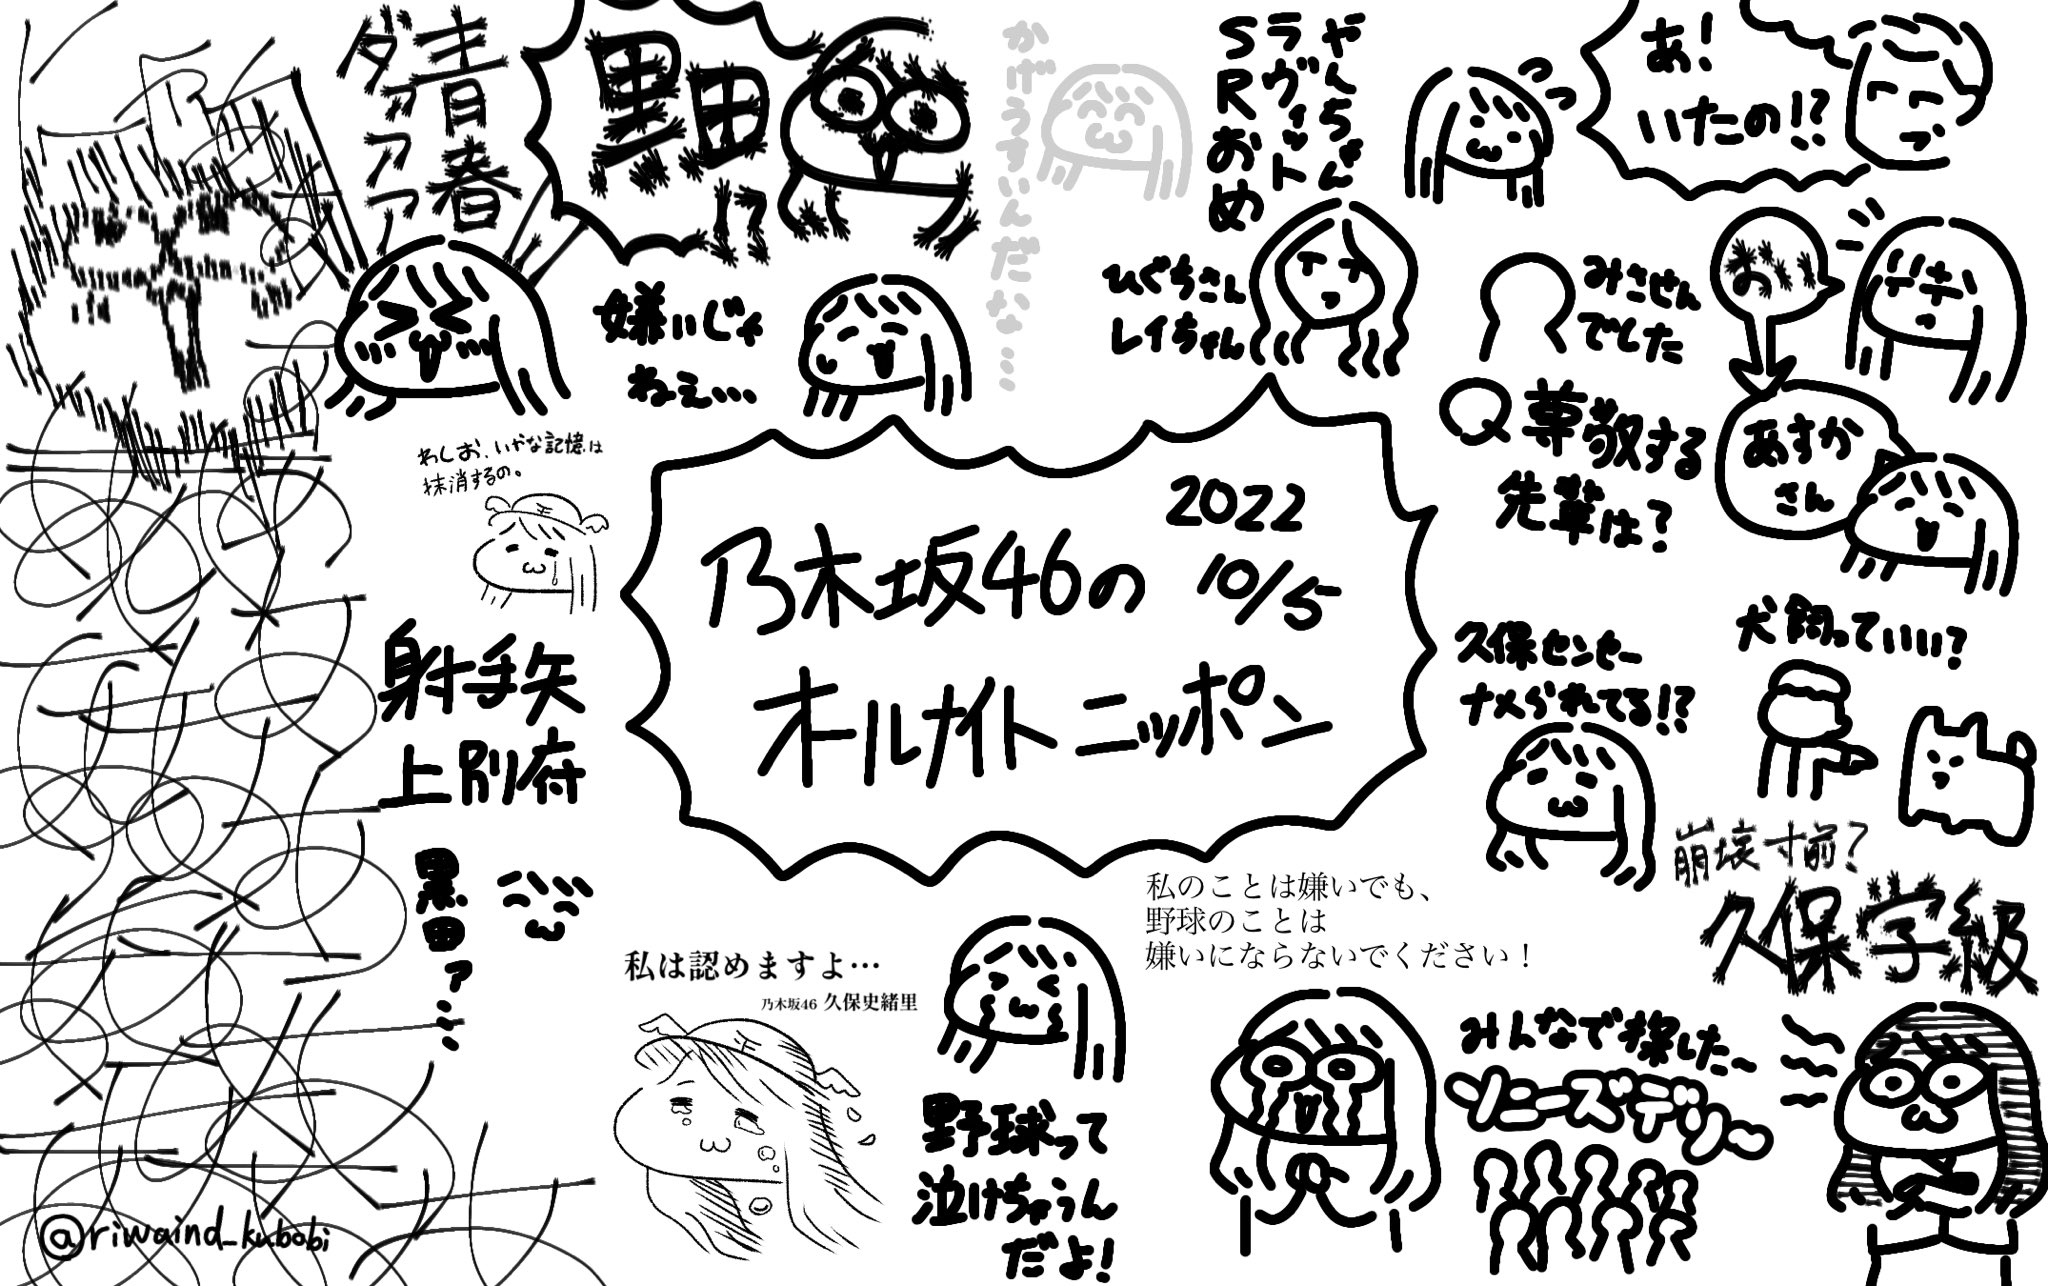 青春
ダァァァ
黒田
!?
かげうすいんだな…
やんちゃん
ラヴィット
SRおめ
あ!
いたの!?
嫌いじゃ
ねぇ…
ひぐちさん
レイちゃん
みさせん
でした
お
Q尊敬する
先輩は?
あすか
さん
わしお、いやな記憶は
抹消するの。
2022
10/5
乃木坂46の
オールナイトニッポン
射手矢
上別府
久保センセー
ナメられてる!?
犬飼っていい?
崩壊寸前?
久保学級
黒田ァ…
私は認めますよ…
乃木坂46 久保史緒里
私のことは嫌いでも、
野球のことは
嫌いにならないでください!
野球って
泣けちゃうん
だよ!
みんなで探した〜
ソニーズデリ〜
@riwaind_kubobi